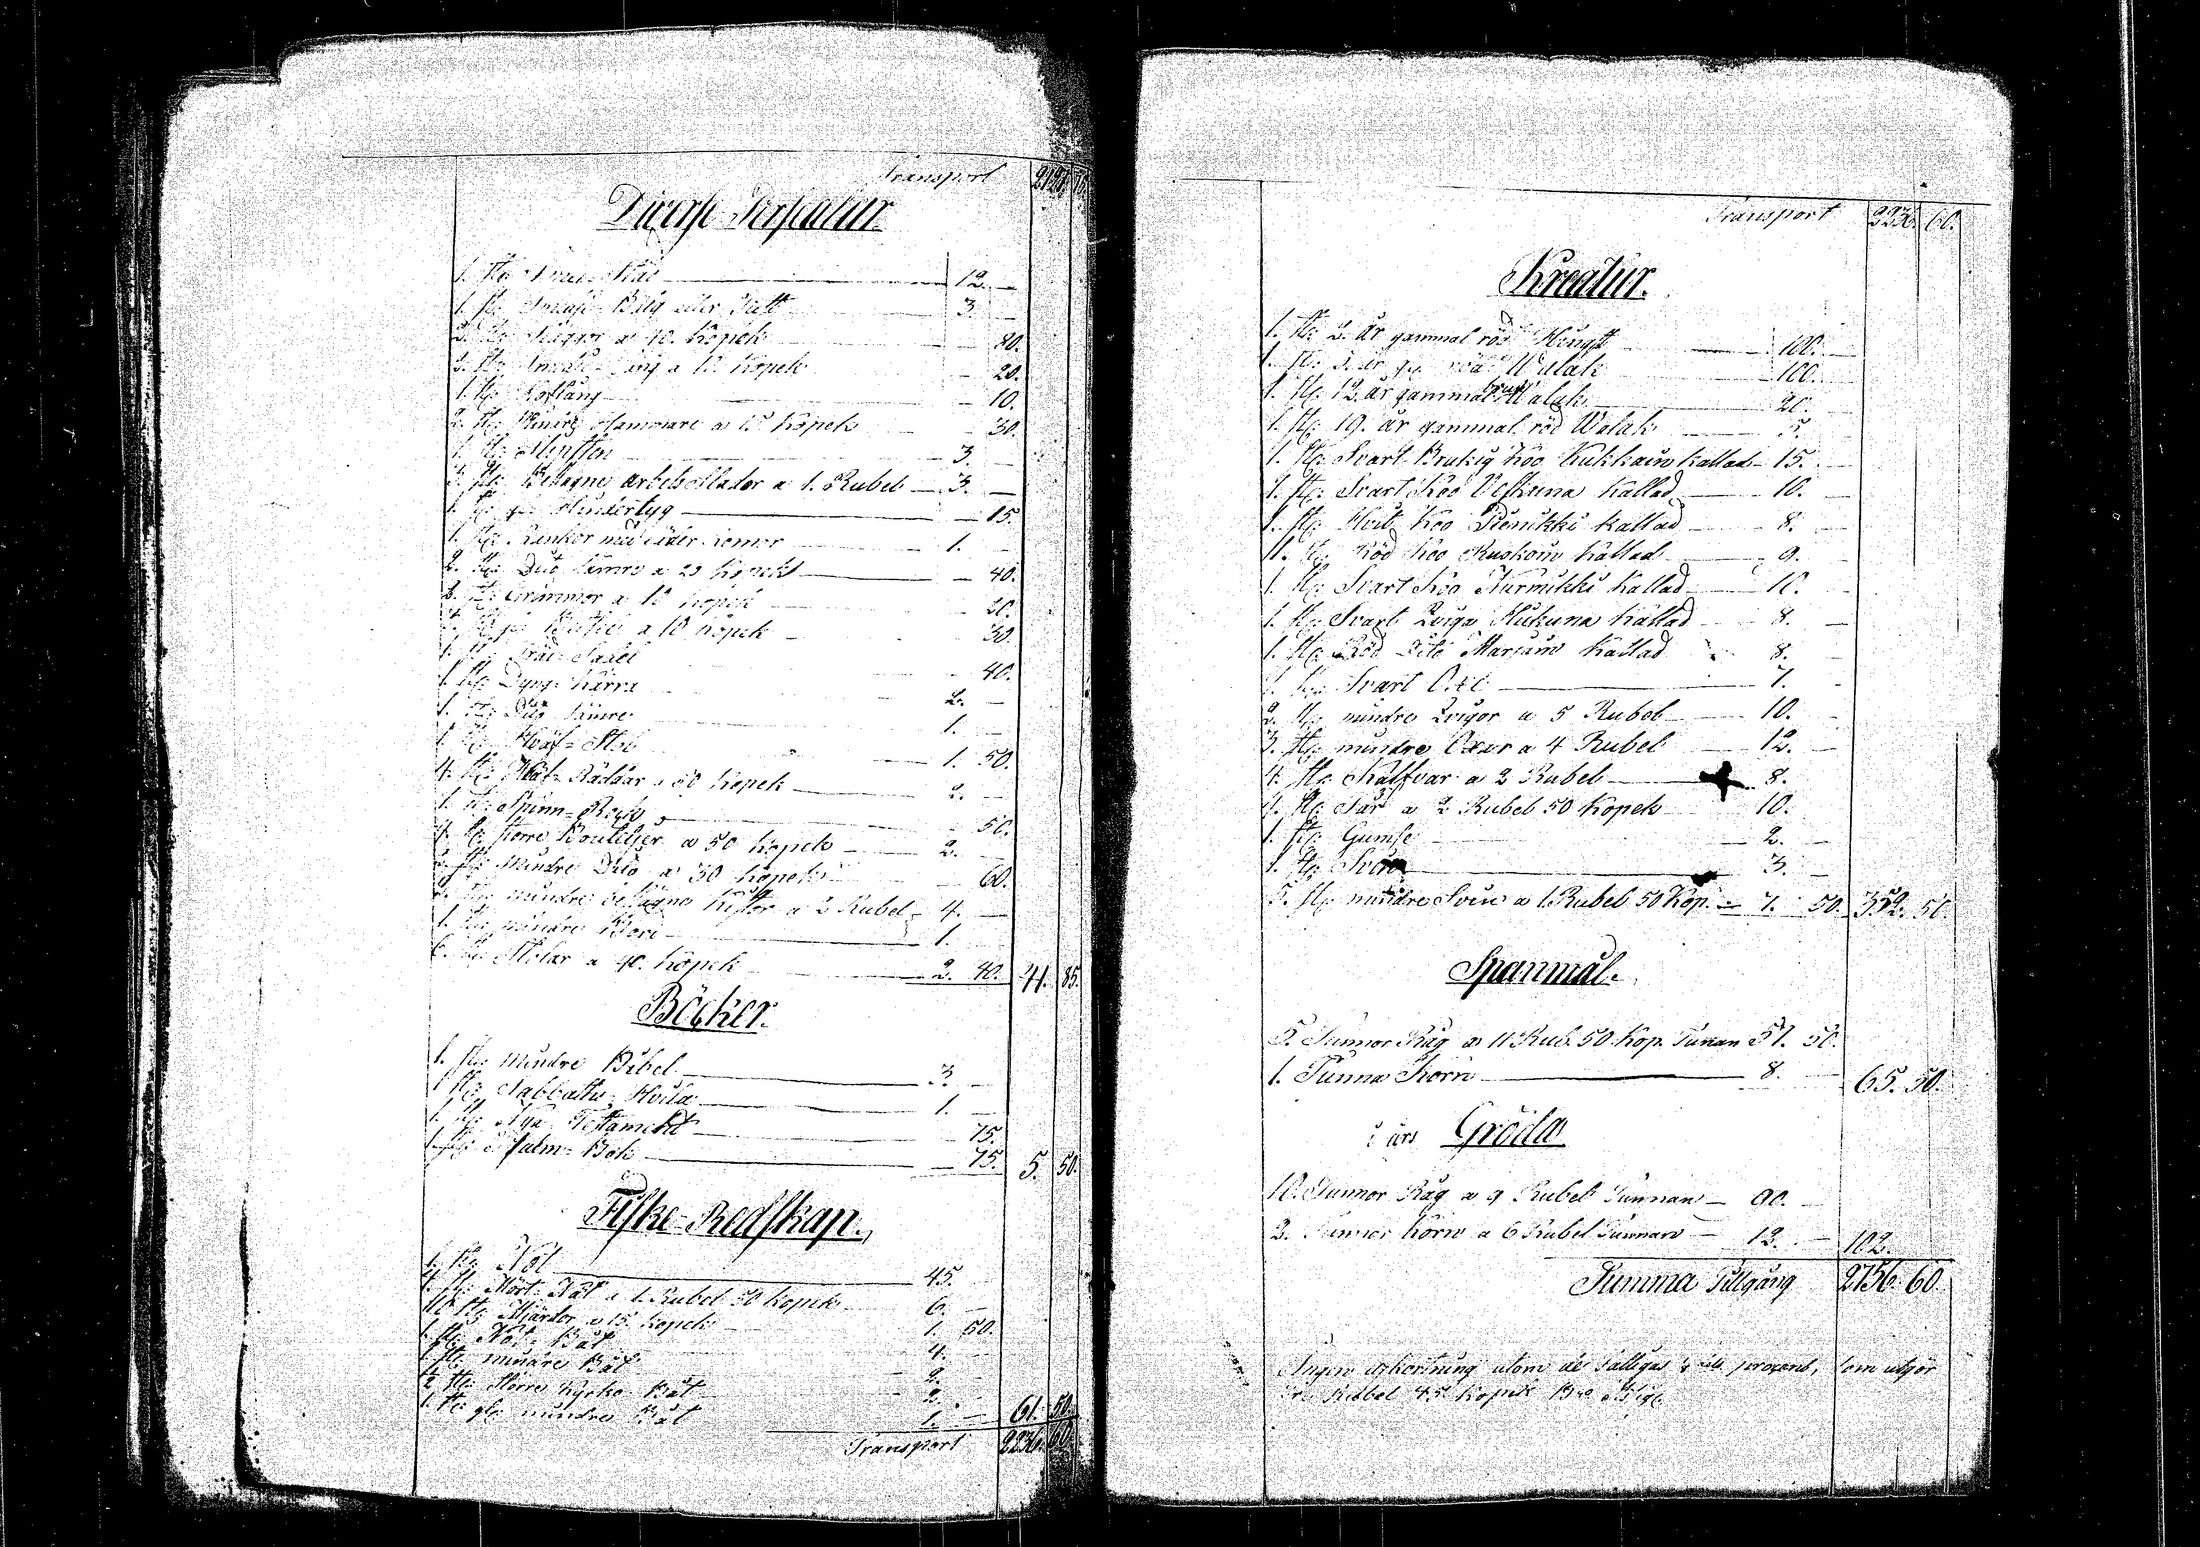 Transport 2127 75
Diverse Persedlar.
1. st: Städ 12. —
1. st: Smides Bälg eller Pust 3.
2. st: Släggor a 40. Kopek — 80.
2. st: Smides Tång a 10 Kopek — 20.
1. st: Koftång — 10.
2. st: Mindre Hammare a 15 Kopek — 30.
1. st: 3.
3. st: Beslagne arbets Slädor a 1. Rubel — 3. —
1. st: — 15.
1. st: Rankor med Läder Remor 1.
2. st: Dito sämre a 20 Kopek — 40.
2. st: Grimmor a 10 Kopek 20.
3. st: a 10 Kopek — 30.
1. st: 40.
1. st: Dyng Kärra 2. —
1. st: Dito sämre 1. —
1. st: Wäf=Stol — 1. 50.
4. st: Wäf=Skädar a 50 Kopek — 2. —
1. st: Spinn=Rock — 50.
4. st: större Bouteljer a 50 Kopek — 2.
2. st: Mindre Dito a 30 Kopek — 60.
2. st: mindre beslagne Kistor a 2 Rubel — 4. —
1. st: mindre Bord — 1.
6. st: Stolar a 40. Kopek — 2. 40. 41. 85.
Böcker.
1. st: mindre Bibel — 3. —
1 st: Sabbaths Hvila — 1. —
1. st: Nya Testament — 75.
1. st: Psalm=Bok — 75. 5. 50.
Fiske-Redskap.
1. st: Not — 45.
4. st: Mört Nät a 1. Rubel 50 Kopek 6. —
10 st: Mjärdor a 15 Kopek 1. 50.
1. st: Not= Båt 4.
1 st: mindre Båt — 2.
2 st: Större Kyrko Båt 2.
1. st: gl: mindre Båt 1. — 61. 50.
Transport 2236. 60.
Transport 2236. 60.
Kreatur.
1. st: 2. år gammal röd Hingst — 100. —
1. st: år Walak — 100. —
1. st: 12. år gammal brun Walak — 20. —
1. st: 19. år gammal röd Walak — 5. —
1. st: Svart Brukig Koo Kukkain kallad — 15. —
1. st: Svart Koo Veskuna Kallad — 10. —
1. st: Hvit Koo Kallad — 8. —
1. st: Röd Koo Ruskoin Kallad — 9. —
1. st: Svart Koo Kurnikki Kallad — 10. —
1. st: Svart Quiga Kallad — 8. —
1. st: Röd Dito Marjain Kallad 8. —
1. st: Svart Oxe — 7. —
2. st: mindre Quigor a 5 Rubel — 10. —
3. st: mindre Oxar a 4 Rubel — 12. —
4. st: Kalfvar a 2 Rubel — 8. —
4. st: Får a 2 Rubel 50 Kopek 10. —
1. st: Gumse — 2. —
1. st: Svin — 3. —
5. st: mindre Svin a 1 Rubel 50 Kop. — 7. 50. 352. 50.
Spanmål.
5. Tunnor Råg a 11 Rub. 50. Kop. Tunan 57. 50.
1. Tunna Korn — 8. — 65. 50.
i års Gröda
10. Tunnor Råg a 9 Rubel Tunnan — 90. —
2. Tunnor Korn a 6 Rubel Tunnan — 12. — 102.
Summa Tillgång 2756. 60.
Ingen afkortning utom de Fattigas procent, som utgör
Rubel 45 Kopek